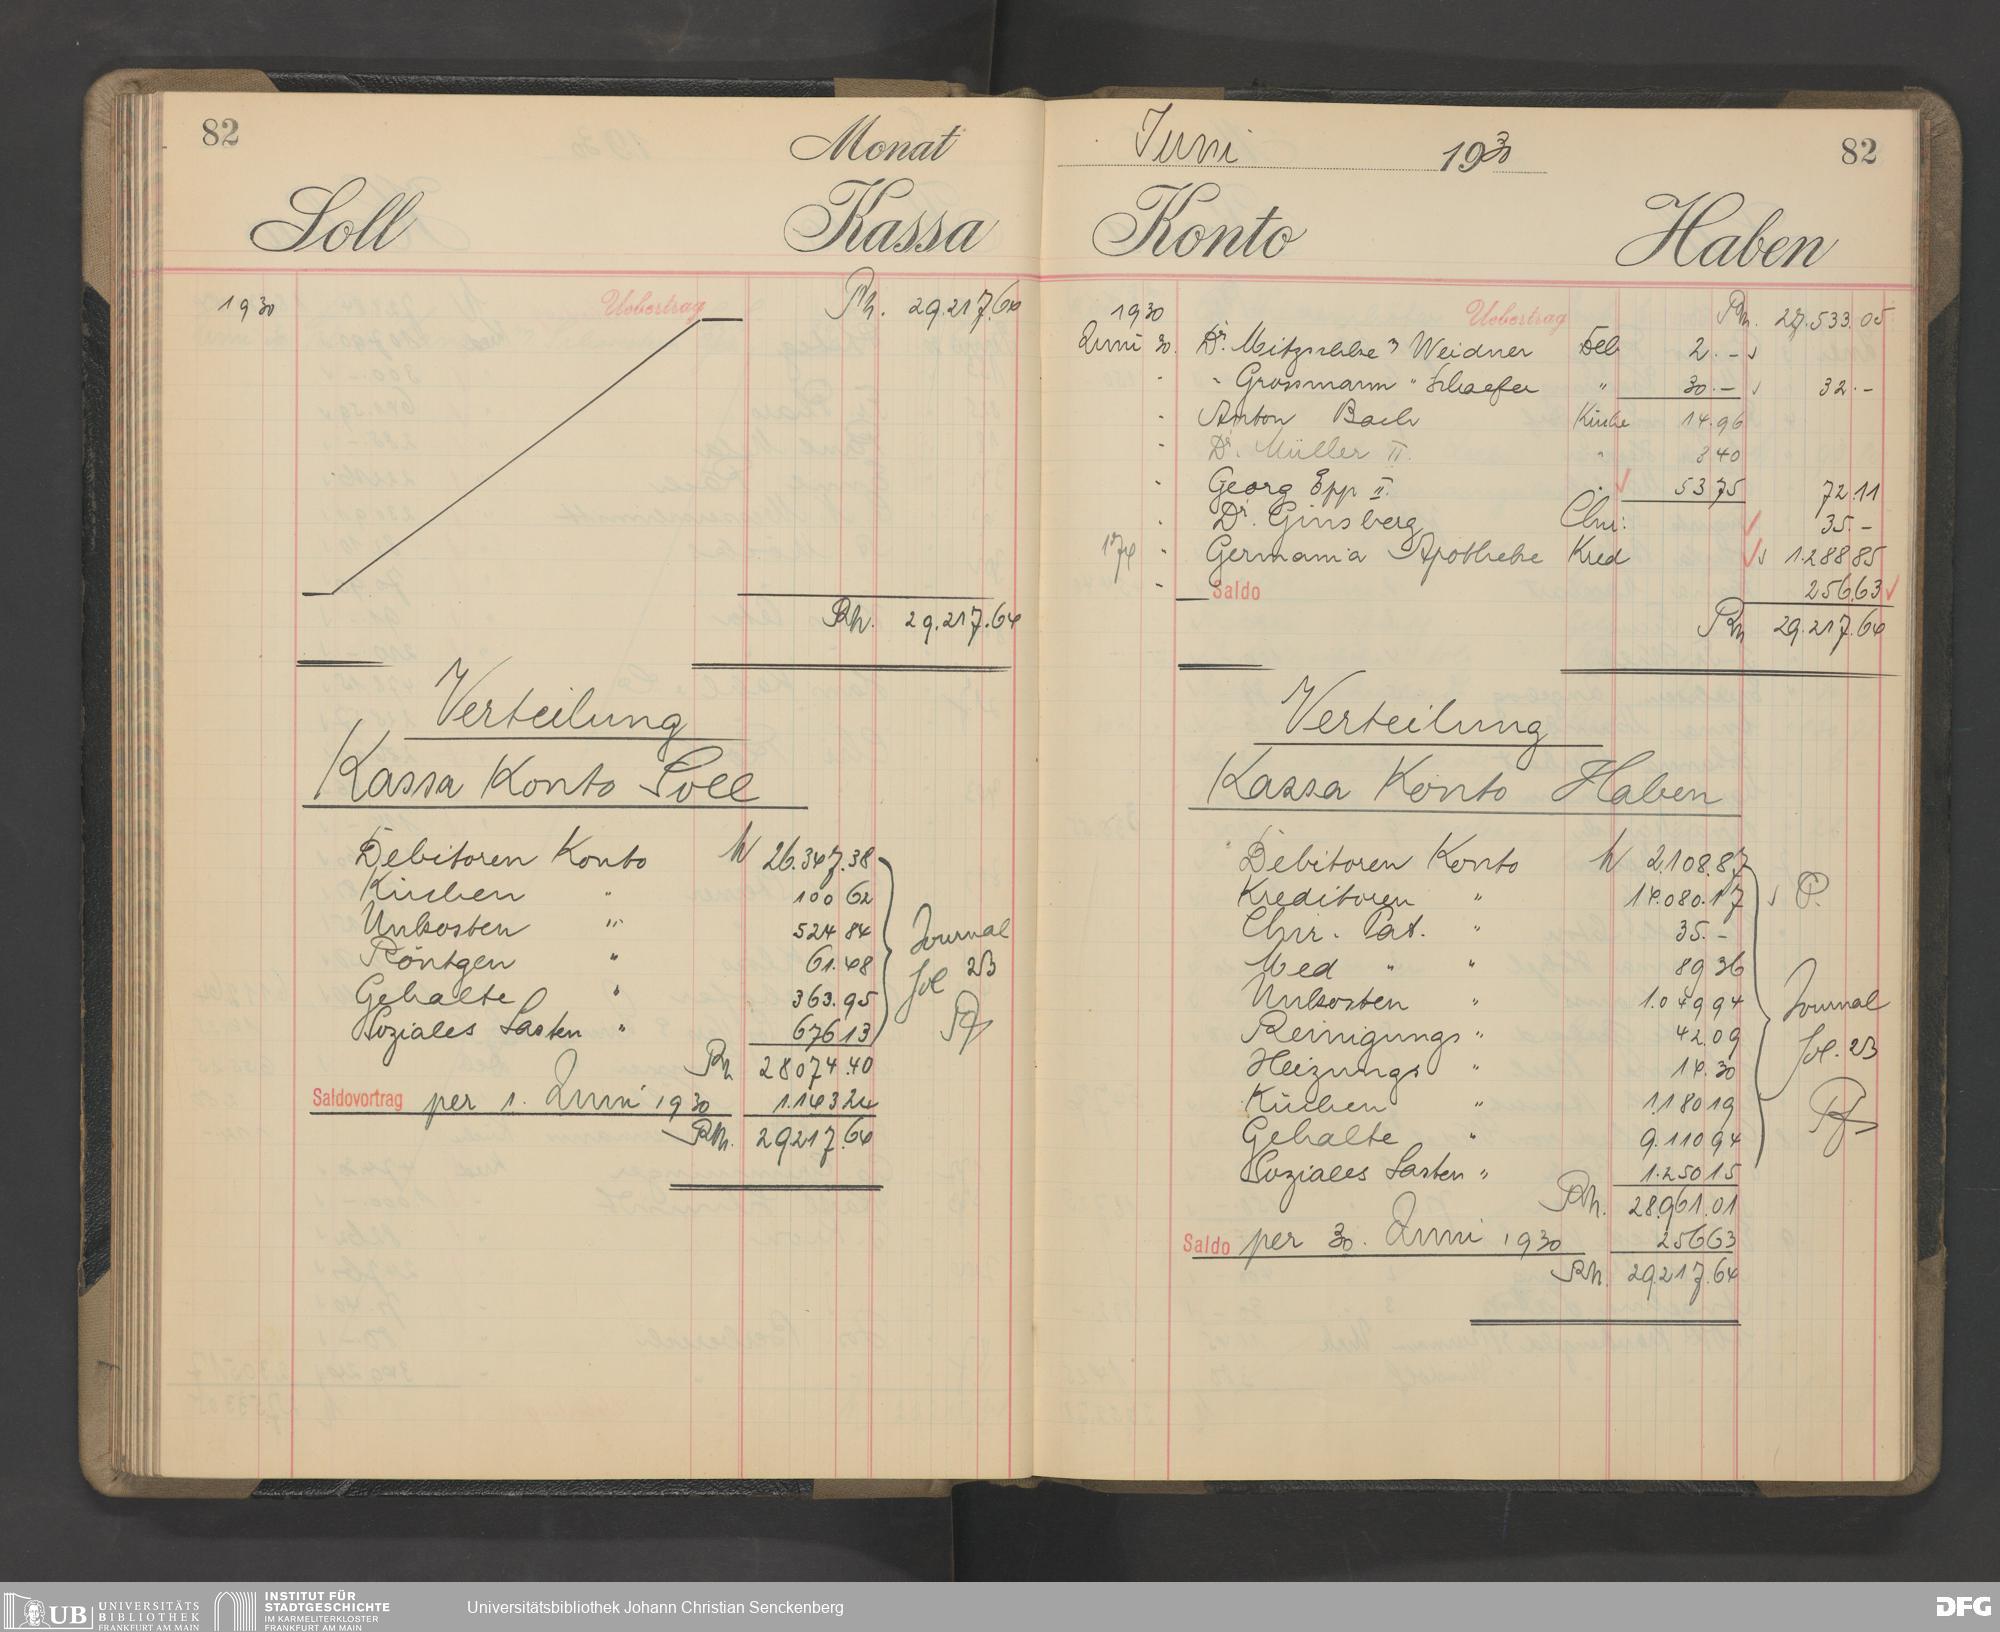 82
Monat
Soll
Kassa
1930
Uebertrag
Rm. 29.217.64
Rm. 29.217.64
Verteilung
Kassa Konto Soll
Debitoren Konto M 26.347.38
Küchen " 100 62
Unkosten " 524 84
Röntgen " 61.48
Gehälte " 363.95
Soziales Lasten " 676 13
Journal
fol 23
Rm 28074.40
Saldovortrag per 1. Juni 1930 1.143 24
Rm. 29217.64
Juni 1930
82
Konto
Haben
1930 Uebertrag Rm. 27.533.05
Juni 30. Dr. Mitzschke & Weidner Deb 2.-
" " Grossmann " Schaefer " 30.- 32.-
" Anton Bach Küche 14.96
" Dr. Müller II. " 3 40
" Georg Epp II. " 53 75 72.11
" Dr. Ginsberg Chir: 35.-
174 " Germania Apotheke Kred 1.288 85
" Saldo 256.63
Rm 29.217.64
Verteilung
Kassa Konto Haben
Debitoren Konto M 2.108.87
Kreditoren " 14.080.17
Chir. Pat. " 35.-
Med " " 89 36
Unkosten " 1.049 94
Reinigungs " 42.09
Heizungs " 14.30
Küchen " 1.180 19
Gehälte " 9.110 94
Soziales Lasten " 1.250 15
Journal
fol. 23
Rm. 28.961.01
Saldo per 30. Juni 1930 256 63
Rm. 29.217.64
UB UNIVERSITÄTS
BIBLIOTHEK
FRANKFURT AM MAIN
INSTITUT FÜR
STADTGESCHICHTE
IM KARMELITERKLOSTER
FRANKFURT AM MAIN
Universitätsbibliothek Johann Christian Senckenberg
DFG